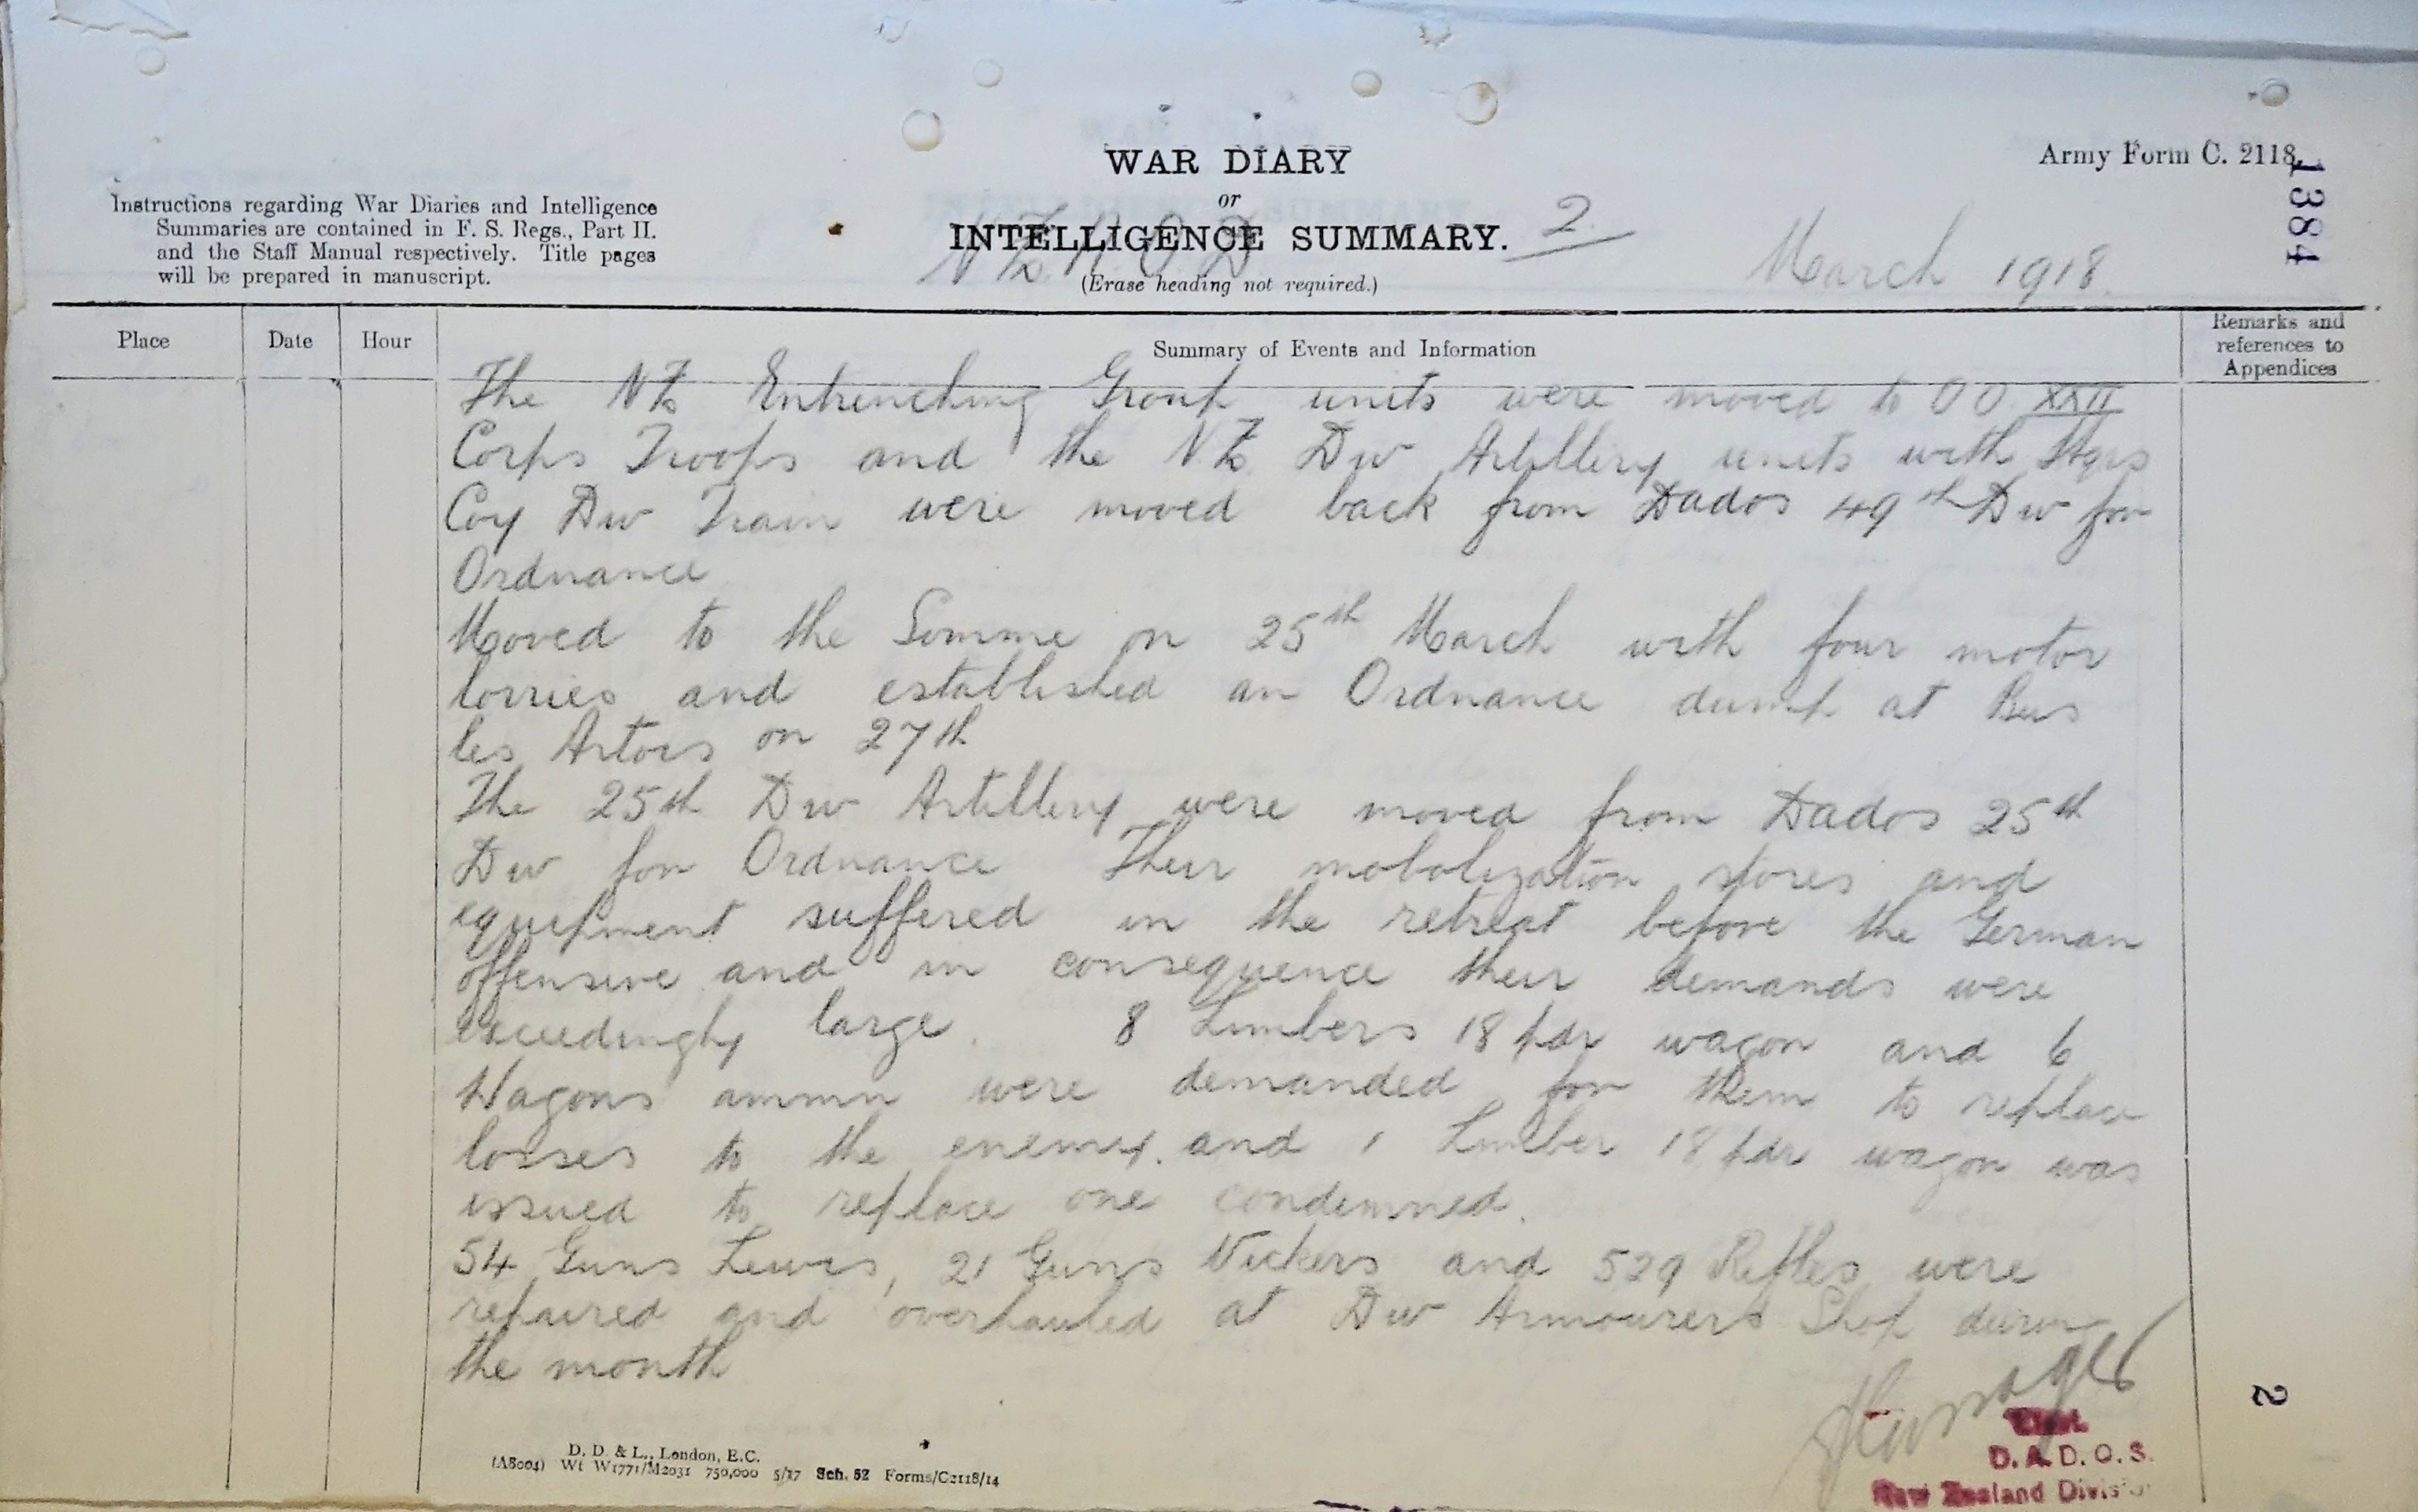 Army Form C. 2118.
1384
WAR DIARY
or
INTELLIGENCE SUMMARY.
2
N.Z. A. O. D
(Erase heading not required.)
March 1918.
Instructions regarding War Diaries and Intelligence
Summaries are contained in F. S. Regs., Part II.
and the Staff Manual respectively. Title pages
will be prepared in manuscript.
Place
Date
Hour
Summary of Events and Information
Remarks and
references to
Appendices
The NZ Entrenching Group units were moved to OO XXII
Corps Troops and the NZ Div Artillery units with Hqrs
Coy Div Train were moved back from Dados 49th Div for
Ordnance
Moved to the Somme on 25th March with four motor
lorries and established an Ordnance dump at Bus
les Artois on 27th
The 25th Div Artillery were moved from Dados 25th
Div for Ordnance Their mobolization stores and
equipment suffered in the retreat before the German
offensive and in consequence their demands were
exceedingly large. 8 Limbers 18 pdr wagon and 6
Wagons ammn were demanded for them to replace
losses to the enemy. and 1 Limber 18 pdr wagon was
issued to replace one condemned.
54 Guns Lewis, 21 Guns Vickers and 529 Rifles were
repaired and overhauled at Div Armourers Shop during
the month
D. A. D. O. S.
New Zealand Division
2
D. D. & L., London, E.C.
(A8004) Wt W1771/M2031 750,000 5/17 Sch. 52 Forms/C2118/14